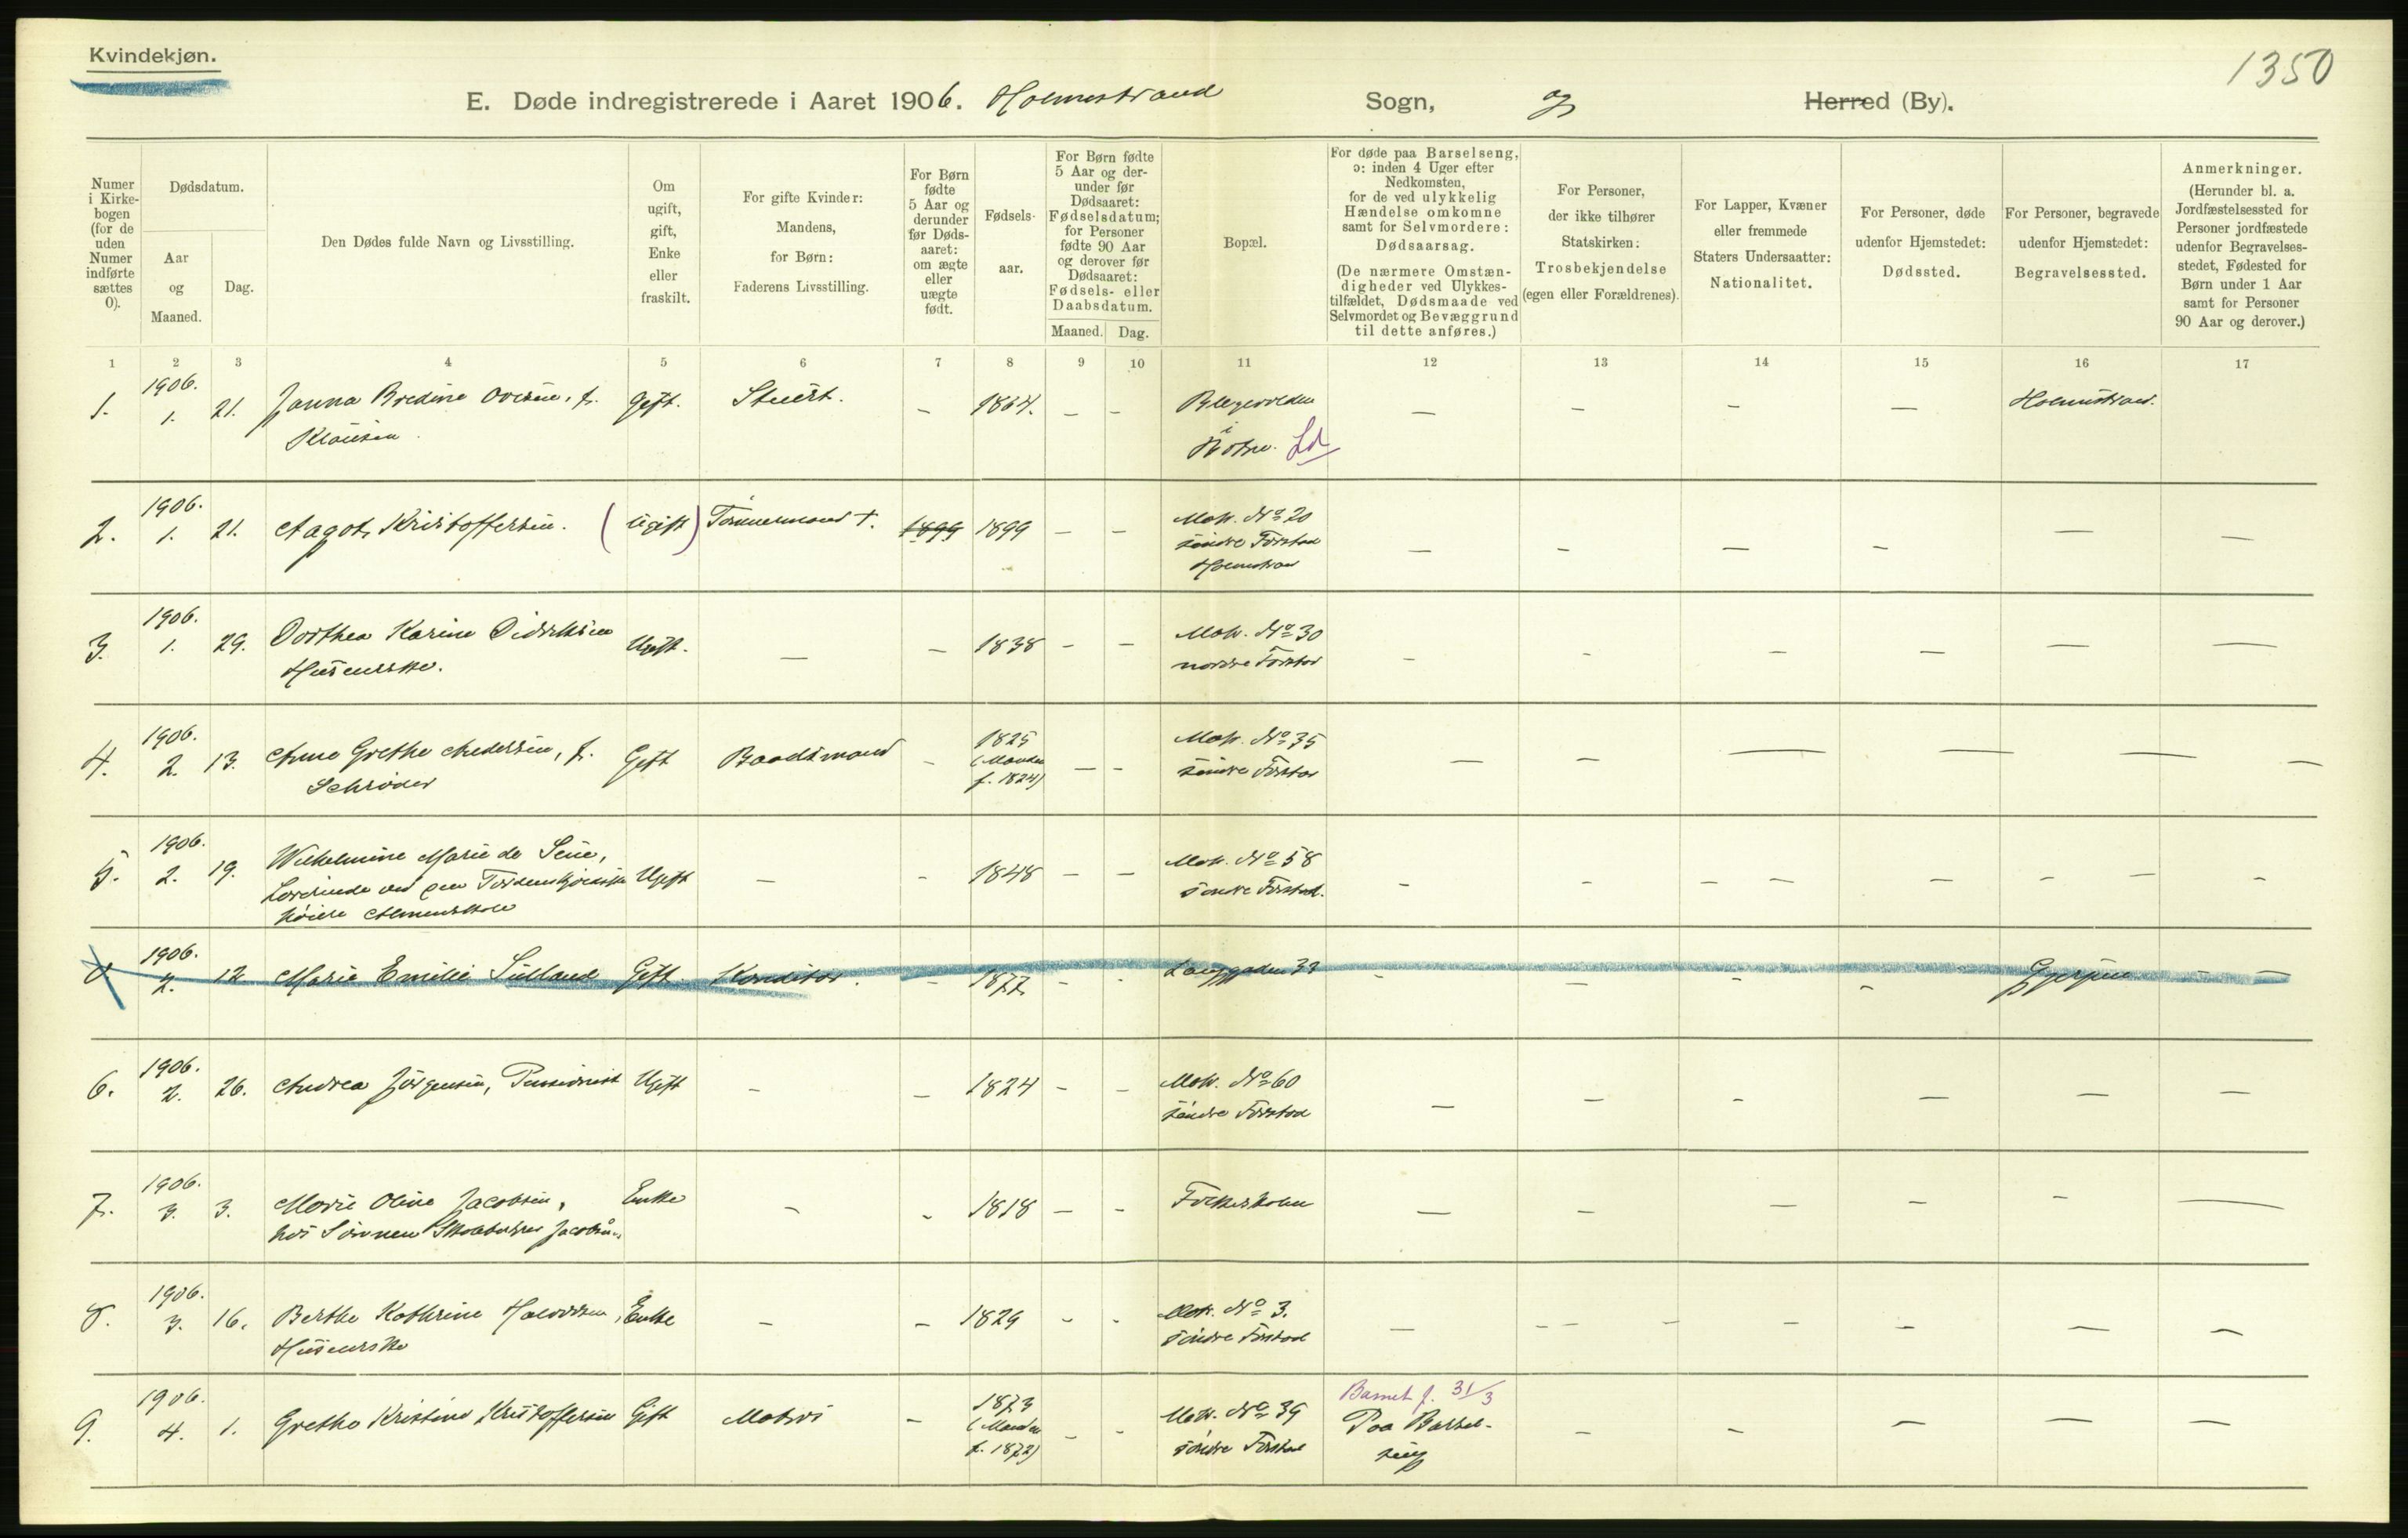 Kvindekjøn.
1350
E. Døde indregistrerede i Aaret 1906. Holmestrand Sogn, og Herred (By).
Numer i Kirkebogen (for de uden Numer indførte sættes 0).
Dødsdatum.
Aar og Maaned.
Dag.
Den Dødes fulde Navn og Livsstilling.
Om ugift, gift, Enke eller fraskilt.
For gifte Kvinder: Mandens, for Børn: Faderens Livsstilling.
For Børn fødte 5 Aar og derunder før Dødsaaret: om ægte eller uægte født.
Fødselsaar.
For Børn fødte 5 Aar og derunder før Dødsaaret: Fødselsdatum; for Personer fødte 90 Aar og derover før Dødsaaret: Fødsels- eller Daabsdatum.
Maaned. Dag.
Bopæl.
For døde paa Barselseng, ɔ: inden 4 Uger efter Nedkomsten, for de ved ulykkelig Hændelse omkomne samt for Selvmordere: Dødsaarsag.
(De nærmere Omstændigheder ved Ulykkestilfældet, Dødsmaade ved Selvmordet og Bevæggrund til dette anføres.)
For Personer, der ikke tilhører Statskirken: Trosbekjendelse (egen eller Forældrenes).
For Lapper, Kvæner eller fremmede Staters Undersaatter: Nationalitet.
For Personer, døde udenfor Hjemstedet: Dødssted.
For Personer, begravede udenfor Hjemstedet: Begravelsessted.
Anmerkninger.
(Herunder bl. a. Jordfæstelsessted for Personer jordfæstede udenfor Begravelsesstedet, Fødested for Børn under 1 Aar samt for Personer 90 Aar og derover.)
1 2 3 4 5 6 7 8 9 10 11 12 13 14 15 16 17
1. 1906. 1. 21. Janna Bredine Ovesen, f. Gift. – 1864. – – – – – – Holmestrand.
Klausen. i Botne. Ld
2. 1906. 1. 21. Aagot Kristoffersen. (Ugift) Tømmermand †. 1899 1899 – – Matr. No 20 – – – – – –
søndre Forstad
Holmestrand
3. 1906. 1. 29. Dorthea Karine Didriksen Ugift. – – 1838 – – Matr. No 30 – – – – – –
Huseierske. nordre Forstad
4. 1906. 2. 13. Anne Grethe Andersen, f. Gift Baadsmand – 1825 – – Matr. No 35 – – – – – –
Schrøder (Manden f. 1824) søndre Forstad
5. 1906. 2. 19. Wilhelmine Marie de Seue, Ugift – – 1848 – – Matr. No 58 – – – – – – –
Lærerinde ved den Tordenskjoldske søndre Forstad.
høiere Almenskole
1906. 2. 12 Marie Emilie Gift Konditor. – 1877 – – Langgaden 33 – – – – Gjerpen – –
6. 1906. 2. 26. Andrea Jørgensen, Pensionist Ugift – – 1824 – – Matr. No 60 – – – – – –
søndre Forstad
7. 1906. 3. 3. Marie Oline Jacobsen, Enke – – 1818 – – – – – – – –
hos Sønnen Jacobsen.
8. 1906. 3. 16. Berthe Kathrine Halvorsen, Enke – – 1829 – – Matr. No 3. – – – – – – –
Huseierske søndre Forstad
9. 1906. 4. 1. Grethe Kristine Kristoffersen Gift Matros – 1873 – – Matr. No 39 Barnet f. 31/3 – – – – –
(Manden f. 1873) søndre Forstad Paa Barselseng